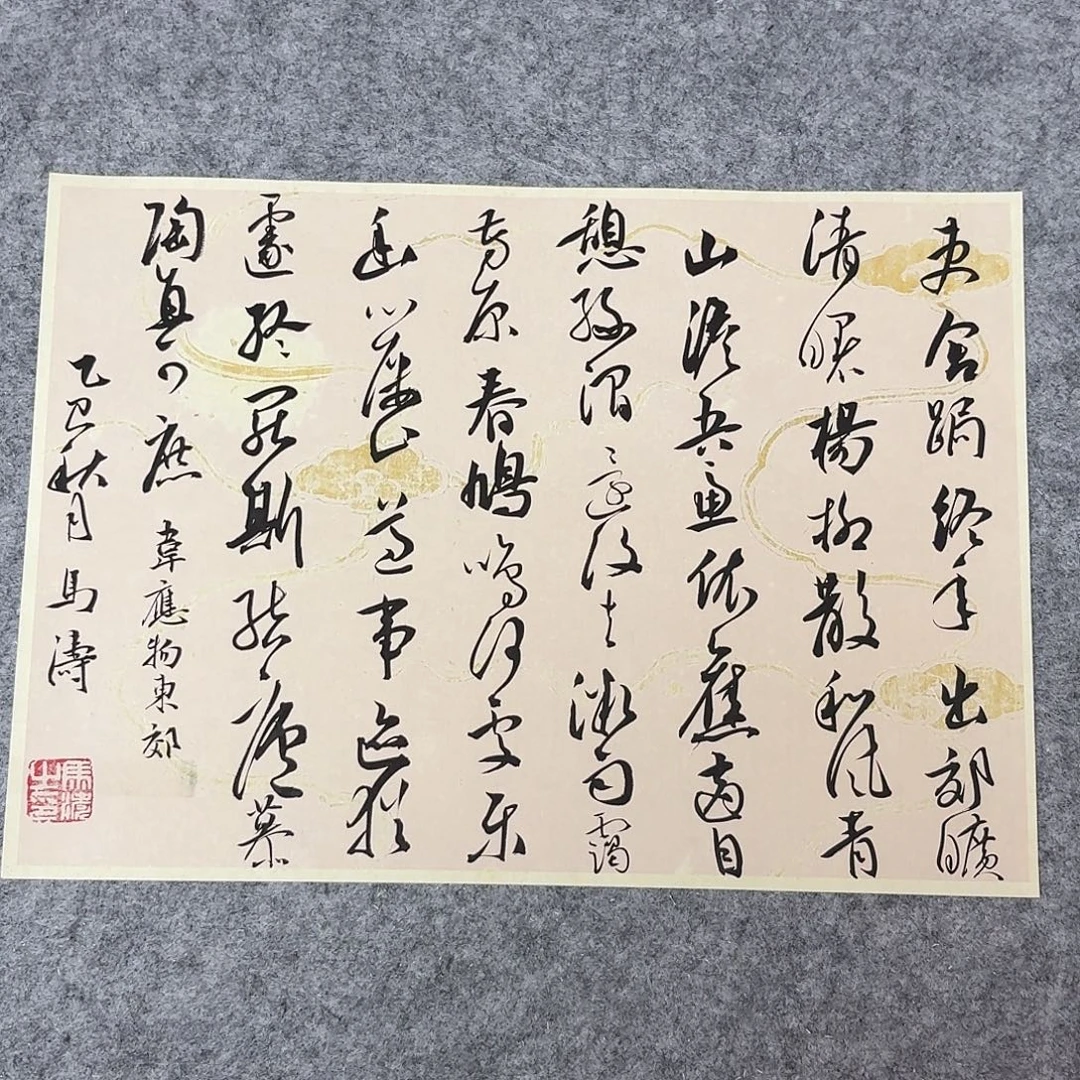 吏舍跼終年出郊曠
清曙楊柳散和風青
山澹吾慮依適自
憩緣澗還復去微雨靄
芳原春鳩鳴何處樂
幽心屢止遵事迹猶
遽終罷斯結廬慕
陶真可庶 韋應物東郊
乙巳秋月 馬濤
馬濤之印